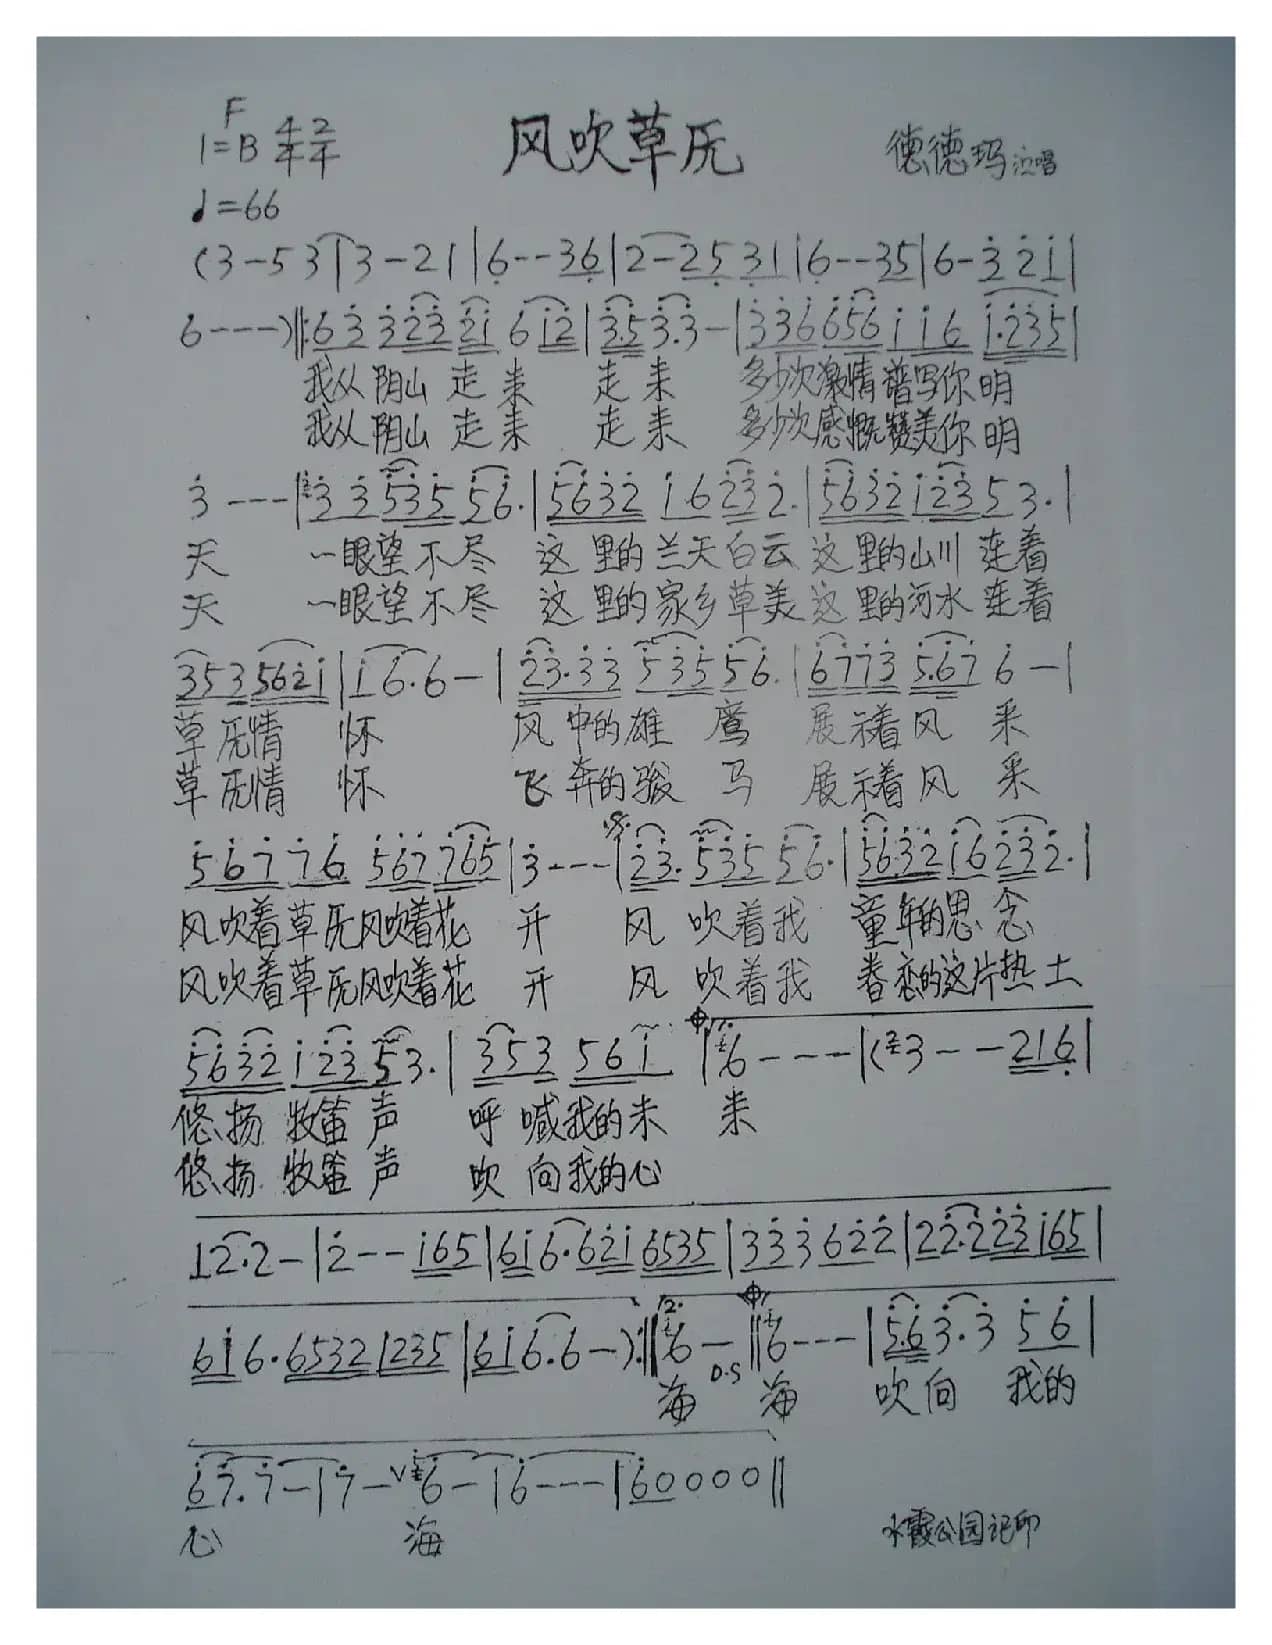 F
1=B 4/4 2/4
风吹草原
德德玛演唱
♩=66
(3-5 3|3-2 1|6--36|2-25 31|6--35|6-3 2 1|
6---)‖:63 323 21 6 12|3.5 3.3-|336 656 1 16 1.235|
我从阴山走来 走来 多少次激情谱写你明
我从阴山走来 走来 多少次感慨赞美你明
3---|3 3 535 56.|5632 16 23 2.|5632 123 5 3.|
天 一眼望不尽 这里的兰天白云 这里的山川 连着
天 一眼望不尽 这里的家乡草美 这里的河水 连着
353 5621|1 6.6-|23.33 535 56.|6773 5.67 6-|
草原情 怀 风中的雄 鹰 展示着风 采
草原情 怀 飞奔的骏 马 展示着风 采
567 76 567 765|3---|23. 535 56.|5632 16 23 2.|
风吹着草原风吹着花 开 风 吹着我 童年的思念
风吹着草原风吹着花 开 风 吹着我 眷恋的这片热土
5632 123 53.|353 56 1|6---|(3--216|
悠扬 牧笛声 呼喊我的未 来
悠扬 牧笛声 吹向我的心
12.2-|2--165|616.621 6535|333 622|22.223 165|
616.6532 1235|616.6-):‖2. 6-‖6---|5.6 3.3 56|
D.S
海 海 吹向 我的
67.7-|7-V6-|6---|60000‖
心 海
水霞公园记印